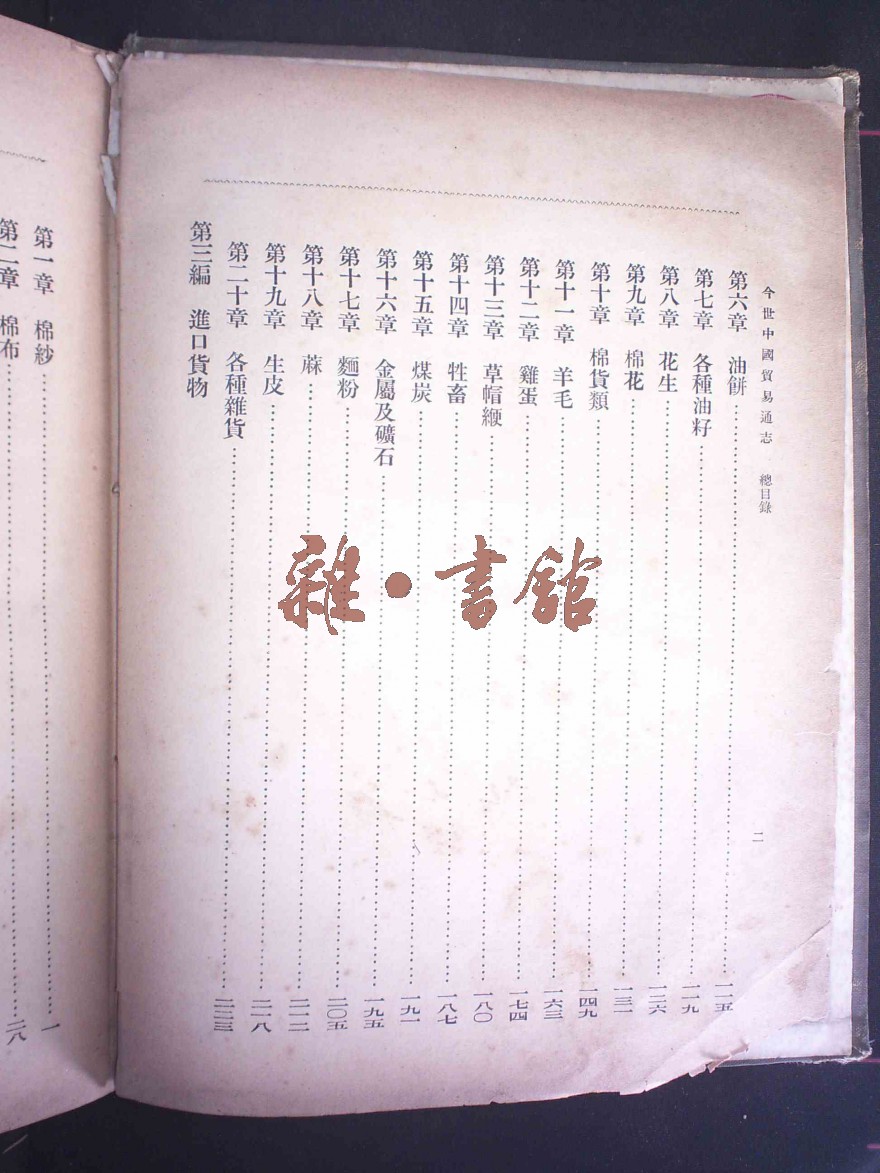 今世中國貿易通志 總目錄 二
第六章 油餅 一一五
第七章 各種油籽 一一九
第八章 花生 一二六
第九章 棉花 一三一
第十章 棉貨類 一四九
第十一章 羊毛 一六三
第十二章 雞蛋 一七四
第十三章 草帽緶 一八〇
第十四章 牲畜 一八七
第十五章 煤炭 一九一
第十六章 金屬及礦石 一九五
第十七章 麵粉 二〇五
第十八章 蔴 二一二
第十九章 生皮 二一八
第二十章 各種雜貨 二二三
第三編 進口貨物
第一章 棉紗 一
第二章 棉布 二八
雜·書館